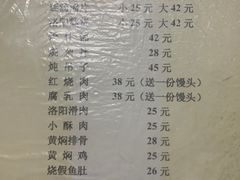 小 25 元 大 42 元
小 25 元 大 42 元
42 元
28 元
炖 吊 子 45 元
红 烧 肉 38 元（送一份馒头）
腐 乳 肉 38 元（送一份馒头）
洛阳滑肉 25 元
小 酥 肉 25 元
黄焖排骨 28 元
黄 焖 鸡 25 元
烧假鱼肚 26 元